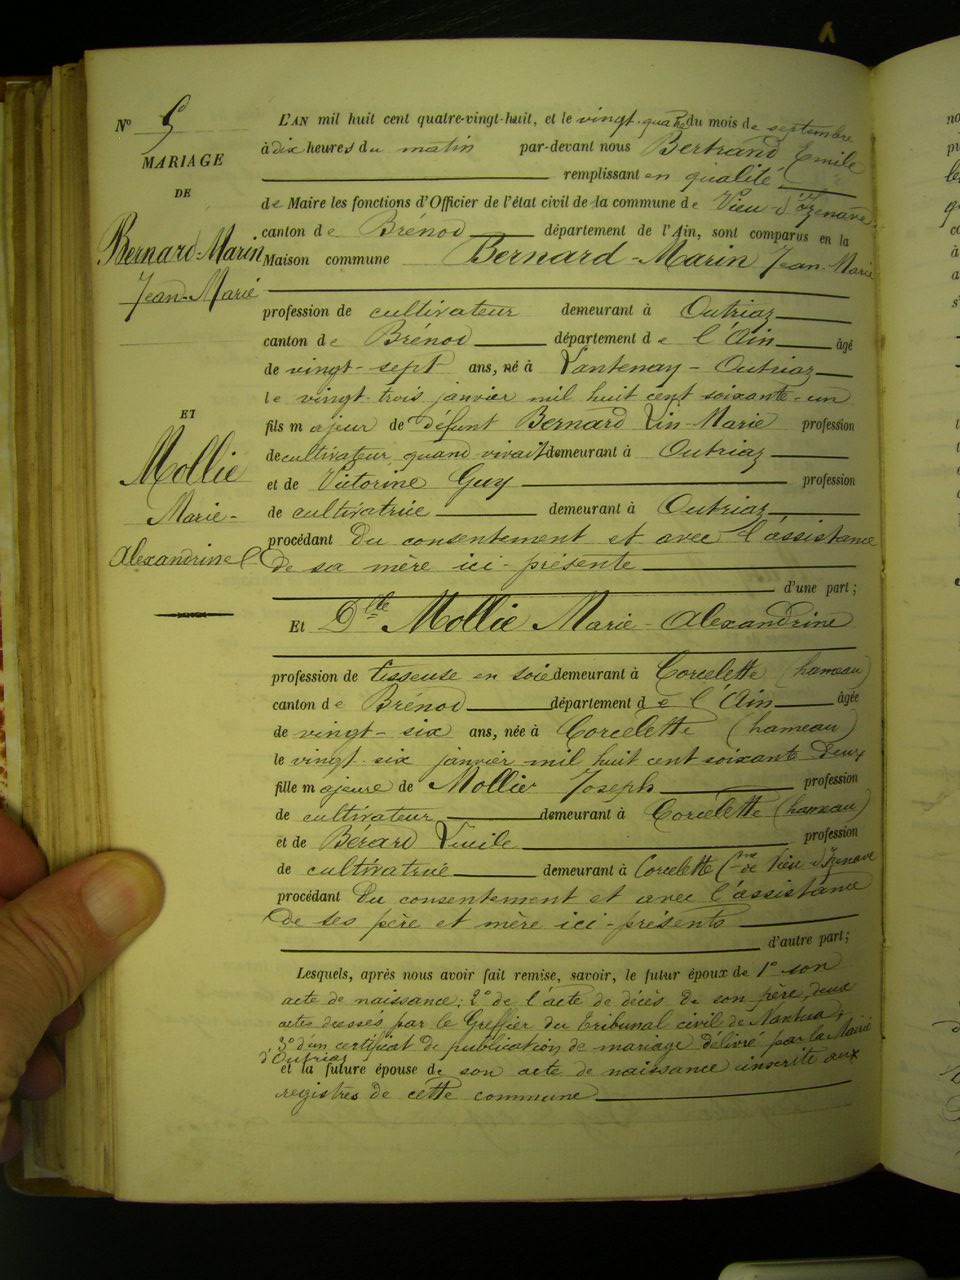 N° 5
MARIAGE
DE
Bernard-Marin
Jean-Marie
ET
Mollie
Marie-
Alexandrine
L'AN mil huit cent quatre-vingt-huit, et le vingt-quatre du mois de septembre
à dix heures du matin par-devant nous Bertrand Emile
remplissant en qualité
de Maire les fonctions d'Officier de l'état civil de la commune de Vieu-d'Izenave
canton de Brénod département de l'Ain, sont comparus en la
Maison commune Bernard-Marin Jean-Marie
profession de cultivateur demeurant à Outriaz
canton de Brénod département de l'Ain âgé
de vingt-sept ans, né à Lantenay-Outriaz
le vingt-trois janvier mil huit cent soixante-un
fils majeur de défunt Bernard Lin-Marie profession
de cultivateur quand vivait demeurant à Outriaz
et de Victorine Guy profession
de cultivatrice demeurant à Outriaz
procédant du consentement et avec l'assistance
de sa mère ici-présente
d'une part;
Et Dlle Mollie Marie-Alexandrine
profession de tisseuse en soie demeurant à Corcelette (hameau)
canton de Brénod département de l'Ain âgée
de vingt-six ans, née à Corcelette (hameau)
le vingt-six janvier mil huit cent soixante deux
fille majeure de Mollie Joseph profession
de cultivateur demeurant à Corcelette (hameau)
et de Bérard Lucile profession
de cultivatrice demeurant à Corcelette Cne de Vieu-d'Izenave
procédant du consentement et avec l'assistance
de ses père et mère ici-présents
d'autre part;
Lesquels, après nous avoir fait remise, savoir, le futur époux de 1° son
acte de naissance; 2° de l'acte de décès de son père, deux
actes dressés par le Greffier du Tribunal civil de Nantua;
3° d'un certificat de publication de mariage délivré par la Mairie
d'Outriaz
et la future épouse de son acte de naissance inscrite aux
registres de cette commune